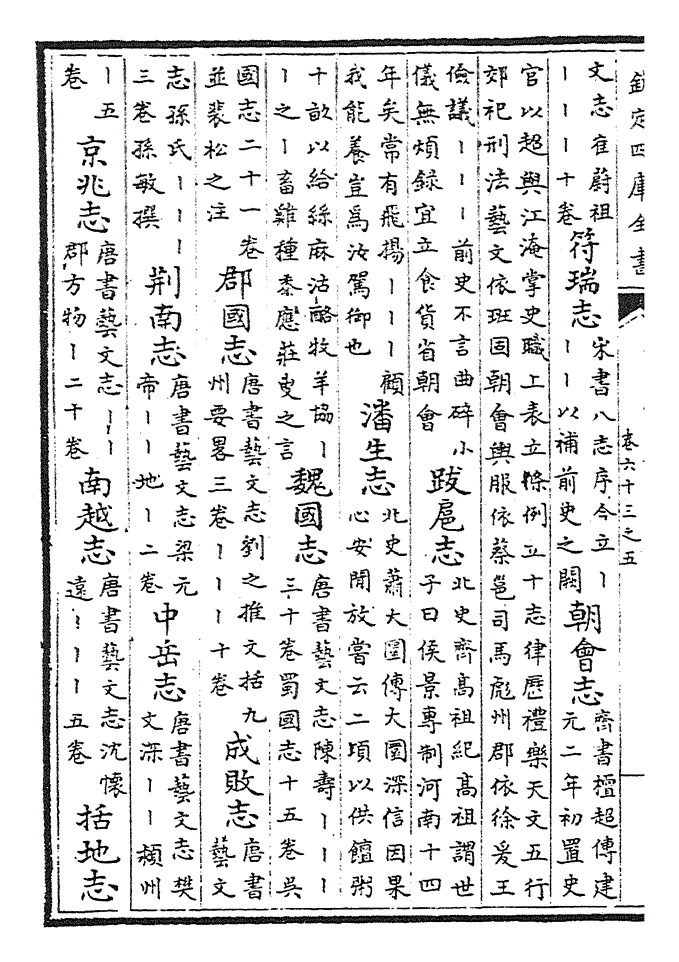 欽定四庫全書 卷六十三之五
文志崔蔚祖丨丨丨十卷 符瑞志 宋書八志序今立丨丨丨以補前史之闕 朝會志 齊書檀超傳建元二年初置史
官以超與江淹掌史職上表立條例立十志律歷禮樂天文五行郊祀刑法藝文依班固朝會輿服依蔡邕司馬彪州郡依徐爰王
儉議丨丨丨前史不言曲碎小儀無煩錄宜立食貨省朝會 跋扈志 北史齊高祖紀高祖謂世子曰侯景專制河南十四
年矣常有飛揚丨丨丨顧我能養豈爲汝駕御也 潘生志 北史蕭大圜傳大圜深信因果心安閒放嘗云二頃以供饘粥
十畝以給絲麻沽酪牧羊協丨丨之丨畜雞種黍應莊叟之言 魏國志 唐書藝文志陳壽丨丨丨三十卷蜀國志十五卷吳
國志二十一卷並裴松之注 郡國志 唐書藝文志劉之推文括九州要畧三卷丨丨丨十卷 成敗志 唐書藝文
志孫氏丨丨丨三卷孫敏撰 荆南志 唐書藝文志梁元帝丨丨地丨二卷 中岳志 唐書藝文志樊文深丨丨潁州
丨五卷 京兆志 唐書藝文志丨丨郡方物丨二十卷 南越志 唐書藝文志沈懷遠丨丨丨五卷 括地志